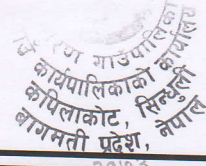 गाउँपालिका
कार्यपालिकाको कार्यालय
कपिलाकोट, सिन्धुली
बागमती प्रदेश, नेपाल